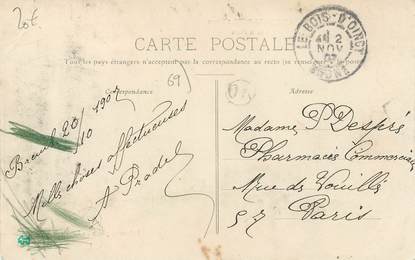 20€
CARTE POSTALE
Tous les pays étrangers n'acceptent pas la correspondance au recto (se renseigner
Correspondance
Adresse
69
LE BOIS-D'OINGT
2
NOV
07
RHONE
Breuil 20/10 1907
Mille choses affectueuses
A Pradel
Madame P Després
Pharmacie Commerciale
Rue de Vouillé
57 Paris